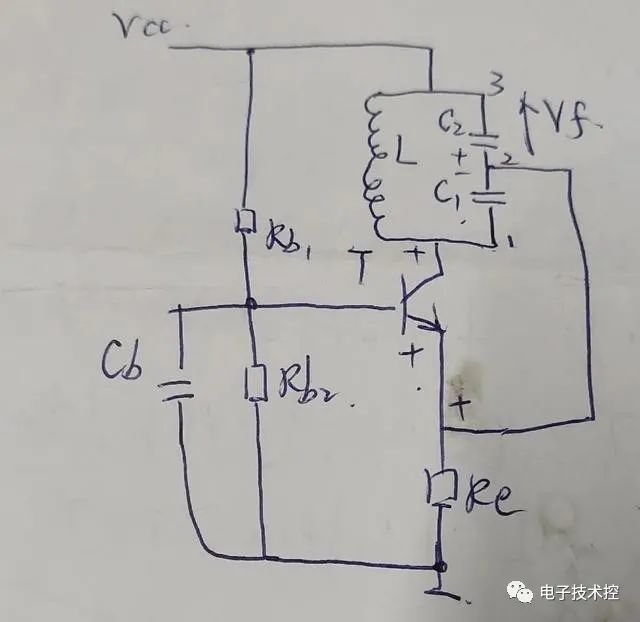 Vcc.
3
C2
Vf.
+
2
L
C1
1
Rb1
T
+
Cb
Rb2
+
+
Re
电子技术控